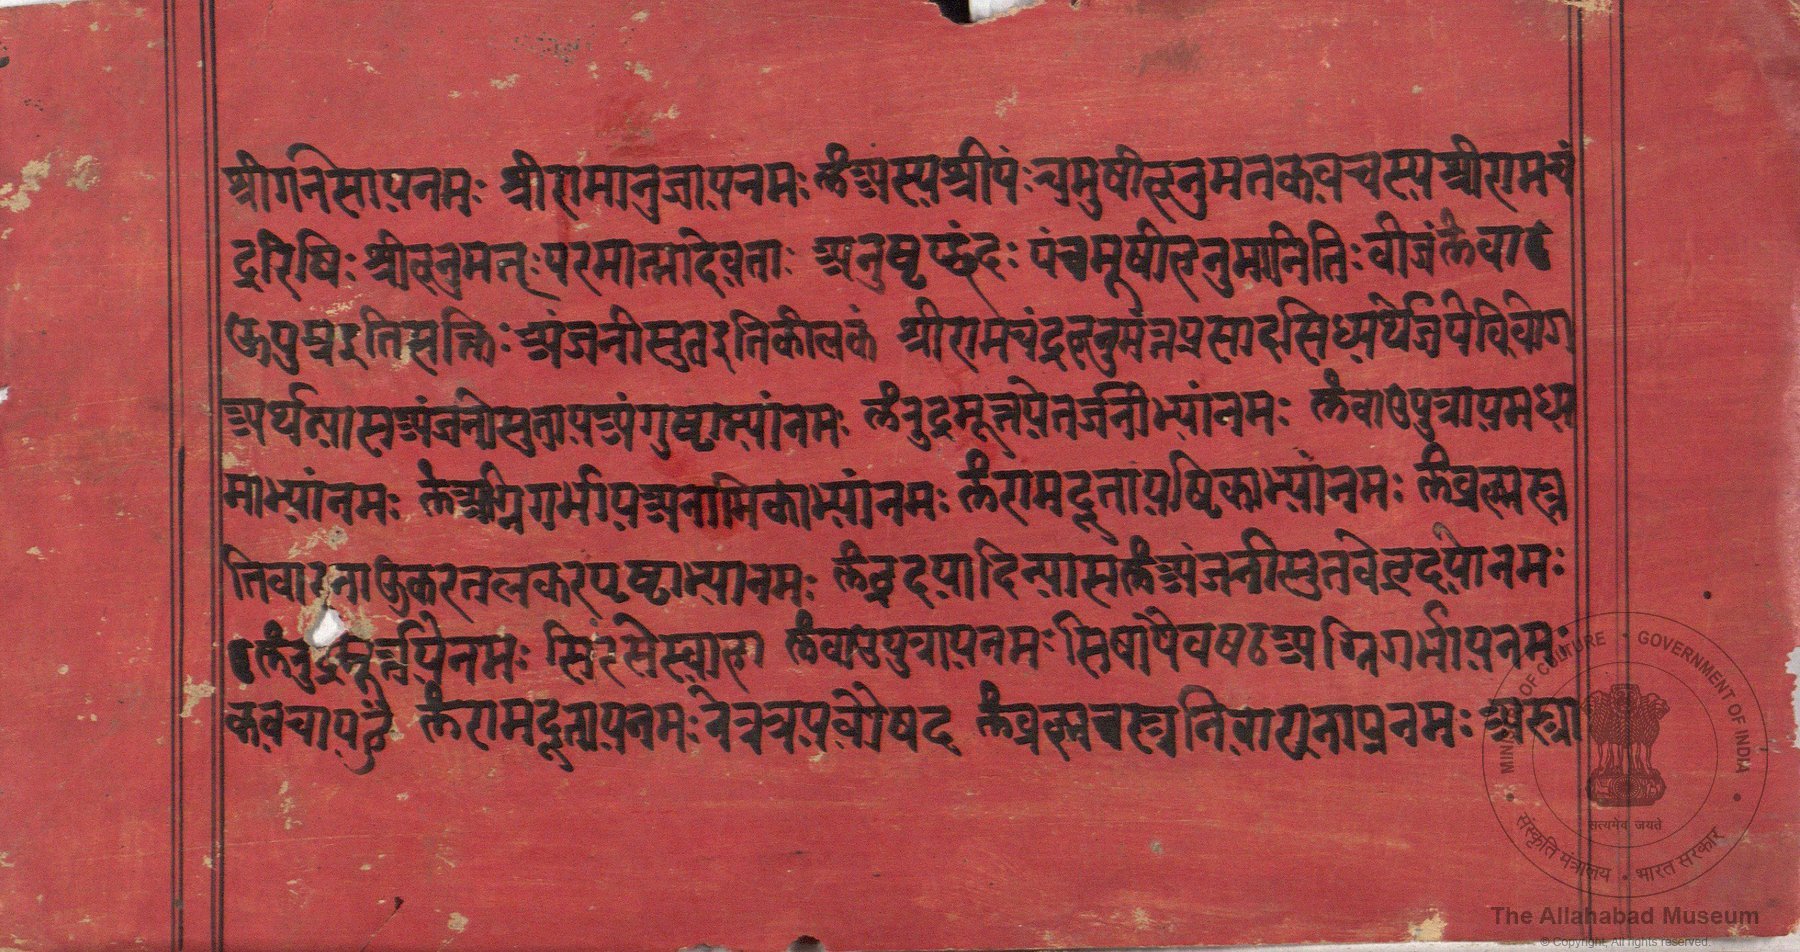 श्रीगनेसायनमः श्रीरामानुजायनमः ॐअंस्यश्रीपंचमुषीहनुमतकवचस्य श्रीरामचं
द्ररिषिः श्रीहनुमतपरमात्मादेवताः अनुष्टुप्छंदः पंचमूषीहनुमानितिः वीजं ॐवा
पुत्रइतिसक्तिः अंजनीसुतइतिकीलकं श्रीरामचंद्रहनुमंतप्रसादसिध्यर्थेजपेविनोग
अर्थन्यासअंजनीसुतायअंगुष्टाभ्यांनमः ॐरुद्रमूर्तयेतर्जनीभ्यांनमः ॐवाउपुत्रायमध्य
माभ्यांनमः ॐअग्निगर्भायअनामिकाभ्यांनमः ॐरामदूतायषिष्टिकाभ्यांनमः ॐव्रह्मास्त्र
निवारनायकरतलकरपृष्टाभ्यानमः ॐहृदयादिन्यास ॐअंजनीसुतवेहृदयेनमः
ॐरुद्रमूर्तयेनमः सिरसेस्वाहा ॐवाउपुत्रायनमः सिषायैवषट अग्निगर्भायनमः
कवचायहुं ॐरामदूतायनमः नेत्रत्रयवौषद ॐव्रह्मास्त्रनिवारनायनमः अस्त्रा
MINISTRY OF CULTURE • GOVERNMENT OF INDIA
सत्यमेव जयते
संस्कृति मंत्रालय • भारत सरकार
The Allahabad Museum
© Copyright, All rights reserved.